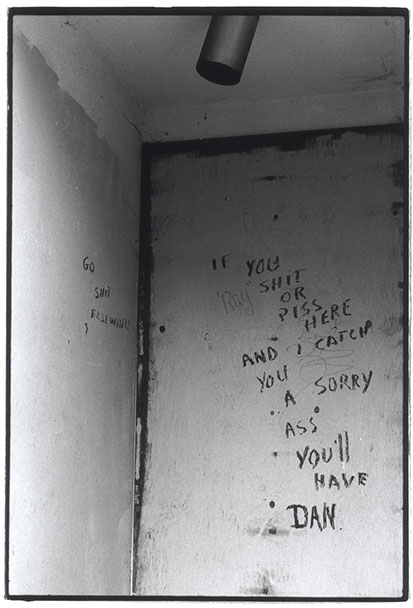 GO
SHIT
ELSEWHERE
!
IF YOU
SHIT
OR
PISS
HERE
AND I CATCH
YOU
A SORRY
ASS
YOU'll
HAVE
DAN.